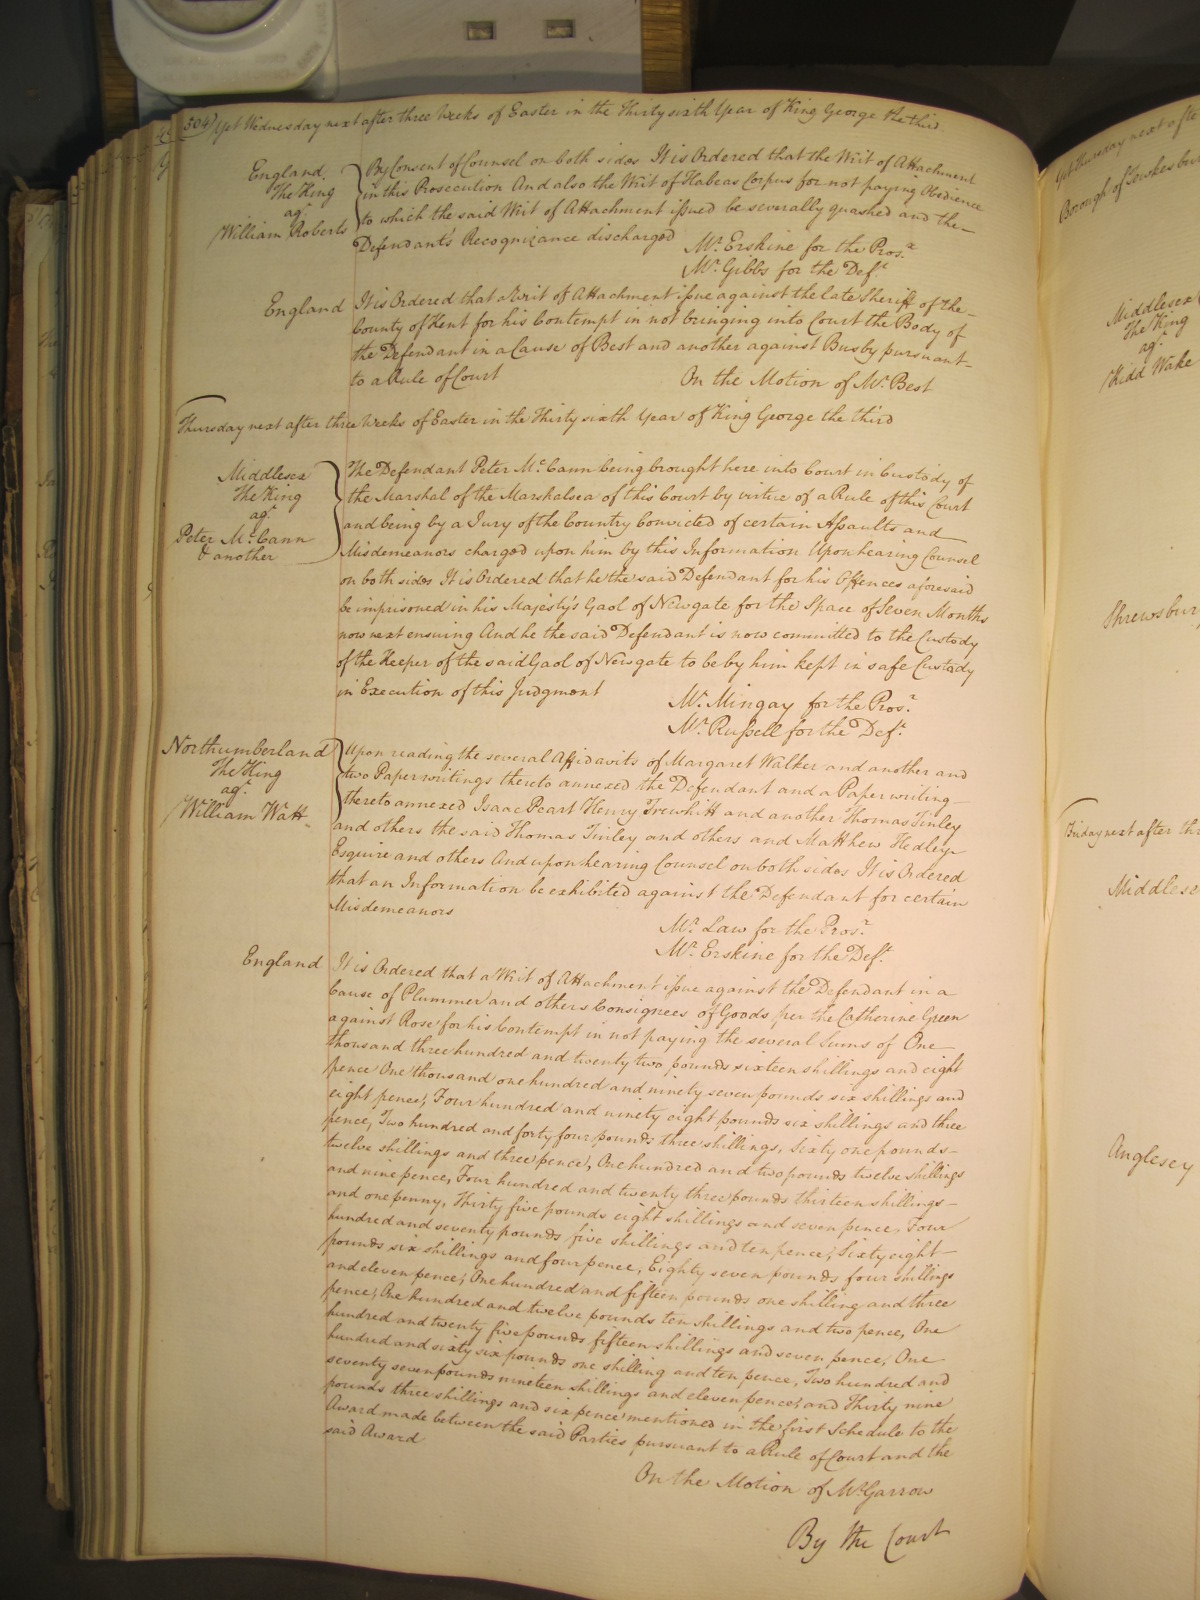 504) Yet Wednesday next after three Weeks of Easter in the Thirty sixth Year of King George the third.
England.
The King
agt.
William Roberts
By Consent of Counsel on both sides It is Ordered that the Writ of Attachment
in this Prosecution And also the Writ of Habeas Corpus for not paying Obedience
to which the said Writ of Attachment issued be severally quashed and the
Defendant's Recognizance discharged
Mr. Erskine for the Pros.r
Mr. Gibbs for the Def.t
England
It is Ordered that a Writ of Attachment issue against the late Sheriff of the
County of Kent for his Contempt in not bringing into Court the Body of
the Defendant in a Cause of Best and another against Busby pursuant
to a Rule of Court
On the Motion of Mr. Best
Thursday next after three Weeks of Easter in the Thirty sixth Year of King George the third
Middlesex
The King
agt.
Peter Mc.Cann
& another
The Defendant Peter Mc.Cann being brought here into Court in Custody of
the Marshal of the Marshalsea of this Court by virtue of a Rule of this Court
and being by a Jury of the Country Convicted of certain Assaults and
Misdemeanors charged upon him by this Information Upon hearing Counsel
on both sides It is Ordered that he the said Defendant for his Offences aforesaid
be imprisoned in his Majesty's Gaol of Newgate for the Space of Seven Months
now next ensuing And he the said Defendant is now committed to the Custody
of the Keeper of the said Gaol of Newgate to be by him kept in safe Custody
in Execution of this Judgment
Mr. Mingay for the Pros.r
Mr. Russell for the Def.t
Northumberland
The King
agt.
William Watt
Upon reading the several Affidavits of Margaret Walker and another and
two Paper writings thereto annexed the Defendant and a Paper writing
thereto annexed Isaac Peart Henry Trewhitt and another Thomas Tinley
and others the said Thomas Tinley and others and Matthew Hedley
Esquire and others And upon hearing Counsel on both sides It is Ordered
that an Information be exhibited against the Defendant for certain
Misdemeanors
Mr. Law for the Pros.r
Mr. Erskine for the Def.t
England
It is Ordered that a Writ of Attachment issue against the Defendant in a
Cause of Plummer and others Consignees of Goods per the Catherine Green
against Rose for his Contempt in not paying the several Sums of One
thousand three hundred and twenty two pounds sixteen shillings and eight
pence One thousand one hundred and ninety seven pounds six shillings and
eight pence, Four hundred and ninety eight pounds six shillings and three
pence, Two hundred and forty four pounds three shillings, Sixty one pounds
twelve shillings and three pence, One hundred and two pounds twelve shillings
and nine pence, Four hundred and twenty three pounds thirteen shillings
and one penny, Thirty five pounds eight shillings and seven pence, Four
hundred and seventy pounds five shillings and ten pence, Sixty eight
pounds six shillings and four pence, Eighty seven pounds four shillings
and eleven pence, One hundred and fifteen pounds one shilling and three
pence, One hundred and twelve pounds ten shillings and two pence, One
hundred and twenty five pounds fifteen shillings and seven pence, One
hundred and sixty six pounds one shilling and ten pence, Two hundred and
seventy seven pounds nineteen shillings and eleven pence and Thirty nine
pounds three shillings and six pence mentioned in the first Schedule to the
Award made between the said Parties pursuant to a Rule of Court and the
said Award
On the Motion of Mr. Garrow
By the Court
Yet Thursday next afte
Borough of Tewkesbur
Middlesex
The King
agt.
Kidd Wake
Shrewsbury
Friday next after thr
Middlese
Anglesey